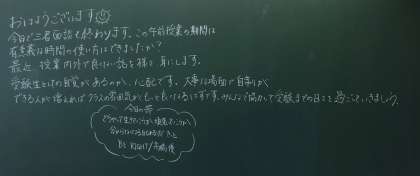 おはようございます
今日で三者面談も終わります。この午前授業の期間は
有意義な時間の使い方はできましたか?
最近、授業内外で良くない話を様々耳にします。
受験生としての自覚があるのか、心配です。大事な場面で自分が
できる人が増えればクラスの雰囲気がもっと良くなるはずです。みんなで協力して受験までの日々を過ごしていきましょう。
今日の
どうやって生きていこうか
分からなくなる